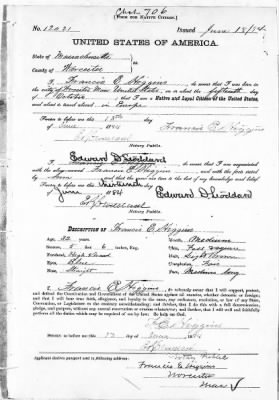 706
[FORM FOR NATIVE CITIZEN.]
No 12021 Issued June 18/84
UNITED STATES OF AMERICA.
STATE OF Massachusetts
COUNTY OF Worcester
I, Francis E Higgins, do swear that I was born in
the city of Worcester Mass United States, on the about the fifteenth day
of October that I am a Native and Loyal Citizen of the United States,
and about to travel abroad in Europe
Sworn to before me this 13th
day of June 1884 Francis E Higgins
Notary Public.
I, Edward D Stoddard do swear that I am acquainted
with the above-named Francis E Higgins and with the facts stated
Sworn to before me this thirteenth
day of June 1884 Edward D Stoddard
Notary Public.
DESCRIPTION OF Francis E Higgins
Age, 32 years. Mouth, Medium
Stature, 5 feet 6 inches, Eng. Chin,
Forehead, High Hair, Light Brown
Eyes, Blue Complexion, Fair
Nose, Straight Face,
I, Francis E Higgins, do solemnly swear that I will support, protect,
and defend the Constitution and Government of the United States against all enemies, whether domestic or foreign;
and that I will bear true faith, allegiance, and loyalty to the same, any ordinance, resolution, or law of any State,
Convention, or Legislature to the contrary notwithstanding; and further, that I do this with a full determination,
pledge, and purpose, without any mental reservation or evasion whatsoever; and further, that I will well and faithfully
perform all the duties which may be required of me by law: So help me God.
Sworn to before me this 13 day
June 1884
Notary Public
Applicant desires passport sent to following address:
Francis E Higgins
Worcester
Mass